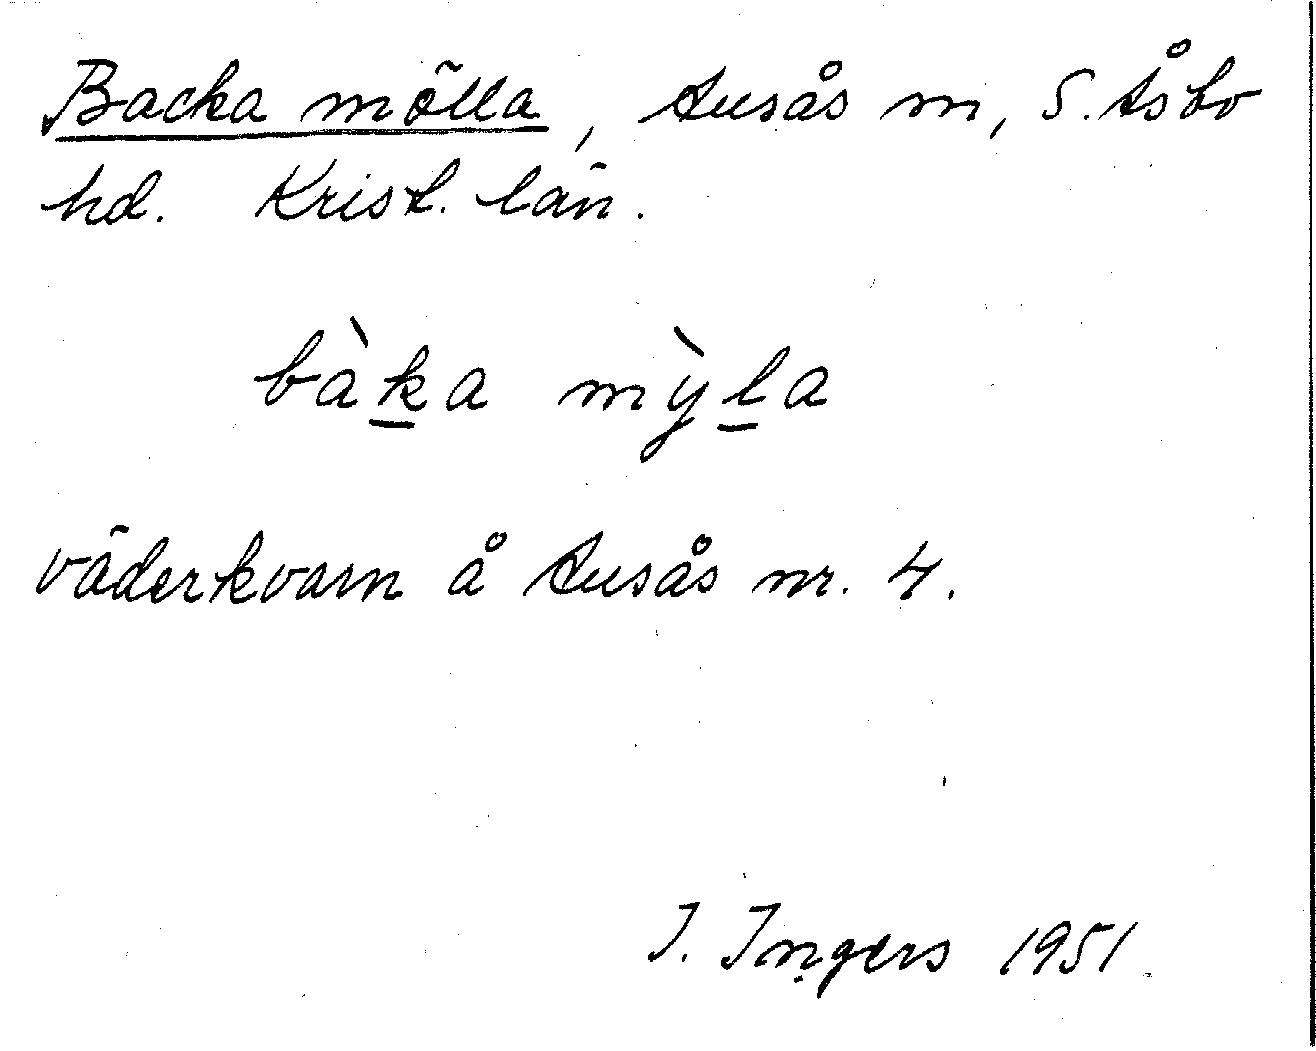 Backa mölla, Ausås sn, S. Åsbo
hd. Krist. län.
bàka mỳla
väderkvarn å Ausås nr. 4.
I. Ingers 1951